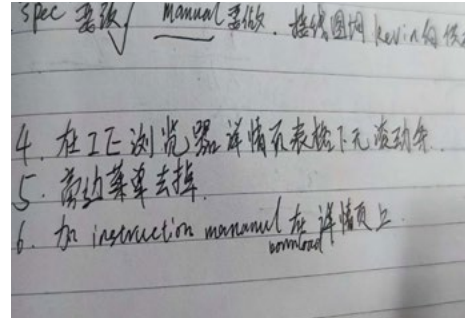 spec 要改√ manual 要做. 接线图问 Kevin 有
4. 在IE浏览器详情页表格下无滚动条.
5. 旁边菜单去掉.
6. 加 instruction manunul 在详情页上.
download